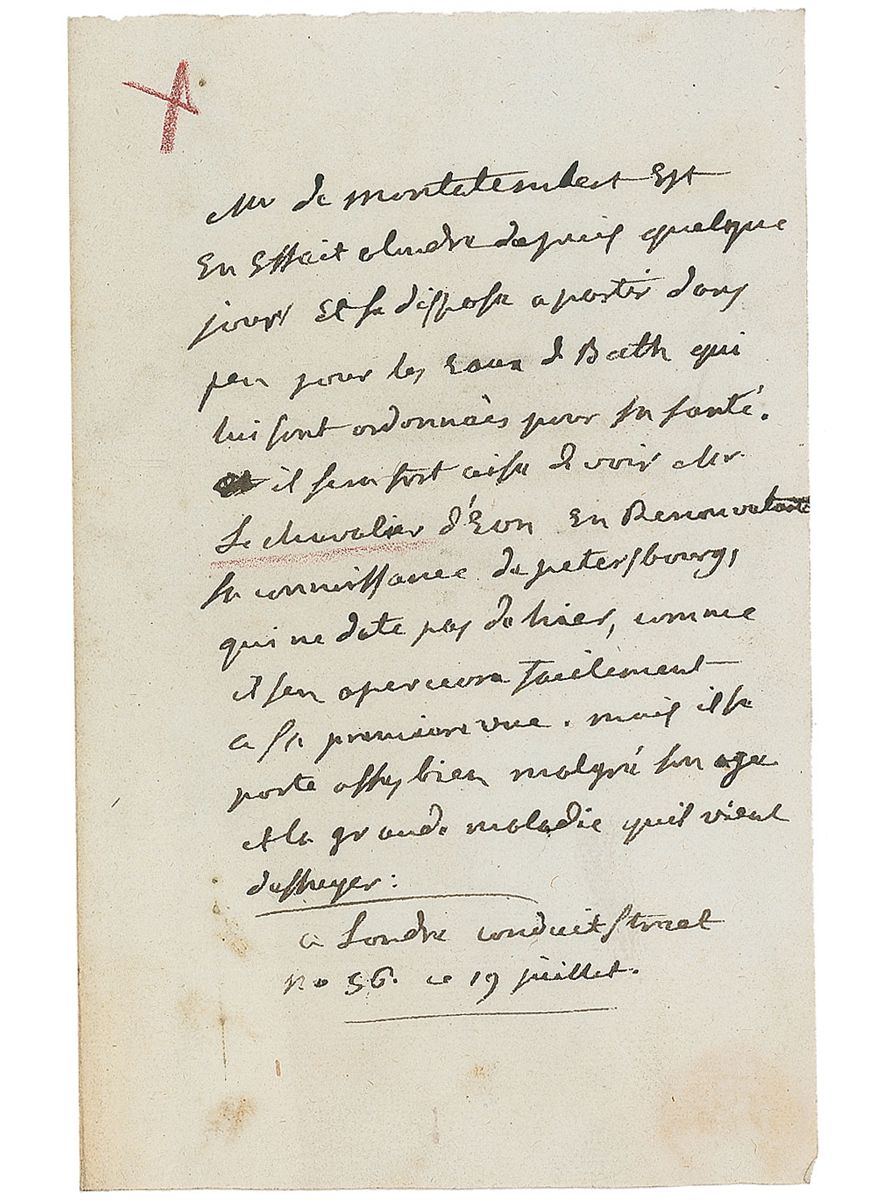 Mr de montalembert Est
En Effait a londre depuis quelque
jours Et se dispose a partir dans
peu pour les Eaux de Bath qui
lui sont ordonnées pour sa santé.
il sera fort aise de voir Mr
Le chevalier d'Eon En Renouvelant
sa connaissance de petersbourg,
qui ne date pas de hier, comme
il sen apercevra facilement
a sa premiere vue. mais il se
porte assez bien malgré son age
et la grande maladie quil vient
dessuyer:
a Londre conduit Street
No 56. ce 19 juillet.